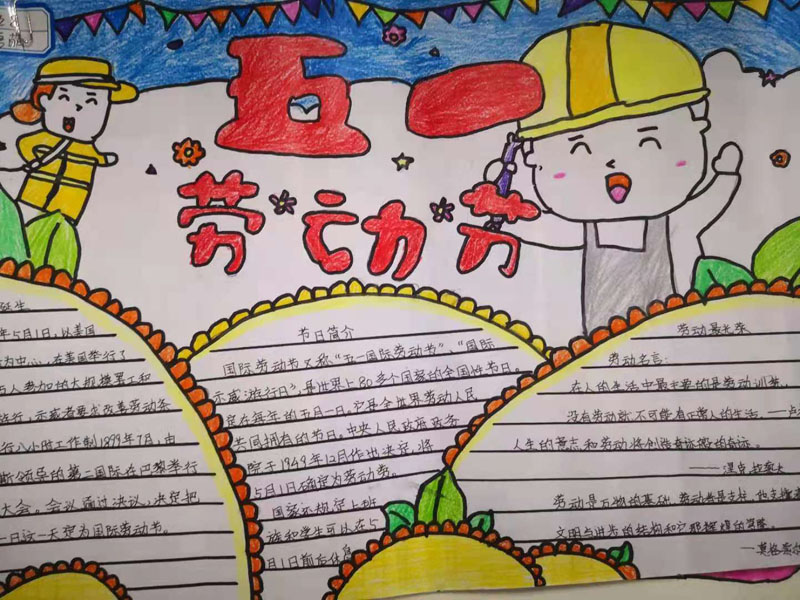 五一
劳动节
诞生
年5月1日,以美国
为中心,在美国举行了
万人参加的大规模罢工和
游行,示威者要求改善劳动条
行八小时工作制1899年7月,由
斯领导的第二国际在巴黎举行
大会。会议通过决议,决定把
一日这一天定为国际劳动节。
节日简介
国际劳动节又称“五一国际劳动节”、“国际
示威游行日”,是世界上80多个国家的全国性节日。
定在每年的五月一日。它是全世界劳动人民
共同拥有的节日。中央人民政府政务
院于1949年12月作出决定,将
5月1日确定为劳动节。
国家法规定上班
族和学生可以在5
月1日前后休息
劳动最光荣
劳动名言:
在人的生活中最主要的是劳动训练。
没有劳动就不可能有正常人的生活。——卢
人生的意志和劳动将创造奇迹般的奇迹。
劳动是万物的基础,劳动者是支柱,他支撑着
文明与进步的结构和它那辉煌的